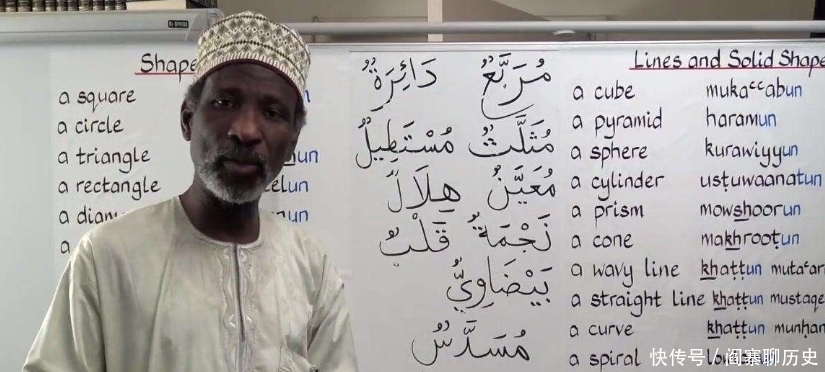 Shape
a square
a circle
a triangle
a rectangle
a
مُرَبَّعٌ دَائِرَةٌ
مُثَلَّثٌ مُسْتَطِيلٌ
مُعَيَّنٌ هِلَالٌ
نَجْمَةٌ قَلْبٌ
بَيْضَاوِيٌّ
مُسَدَّسٌ
Lines and Solid Shape
a cube mukaᶜᶜabun
a pyramid haramun
a sphere kurawiyyun
a cylinder usṭuwaanatun
a prism mowshoorun
a cone makhrooṭun
a wavy line khaṭṭun
a straight line khaṭṭun
a curve khaṭṭun
a spiral
快传号／阎寨聊历史